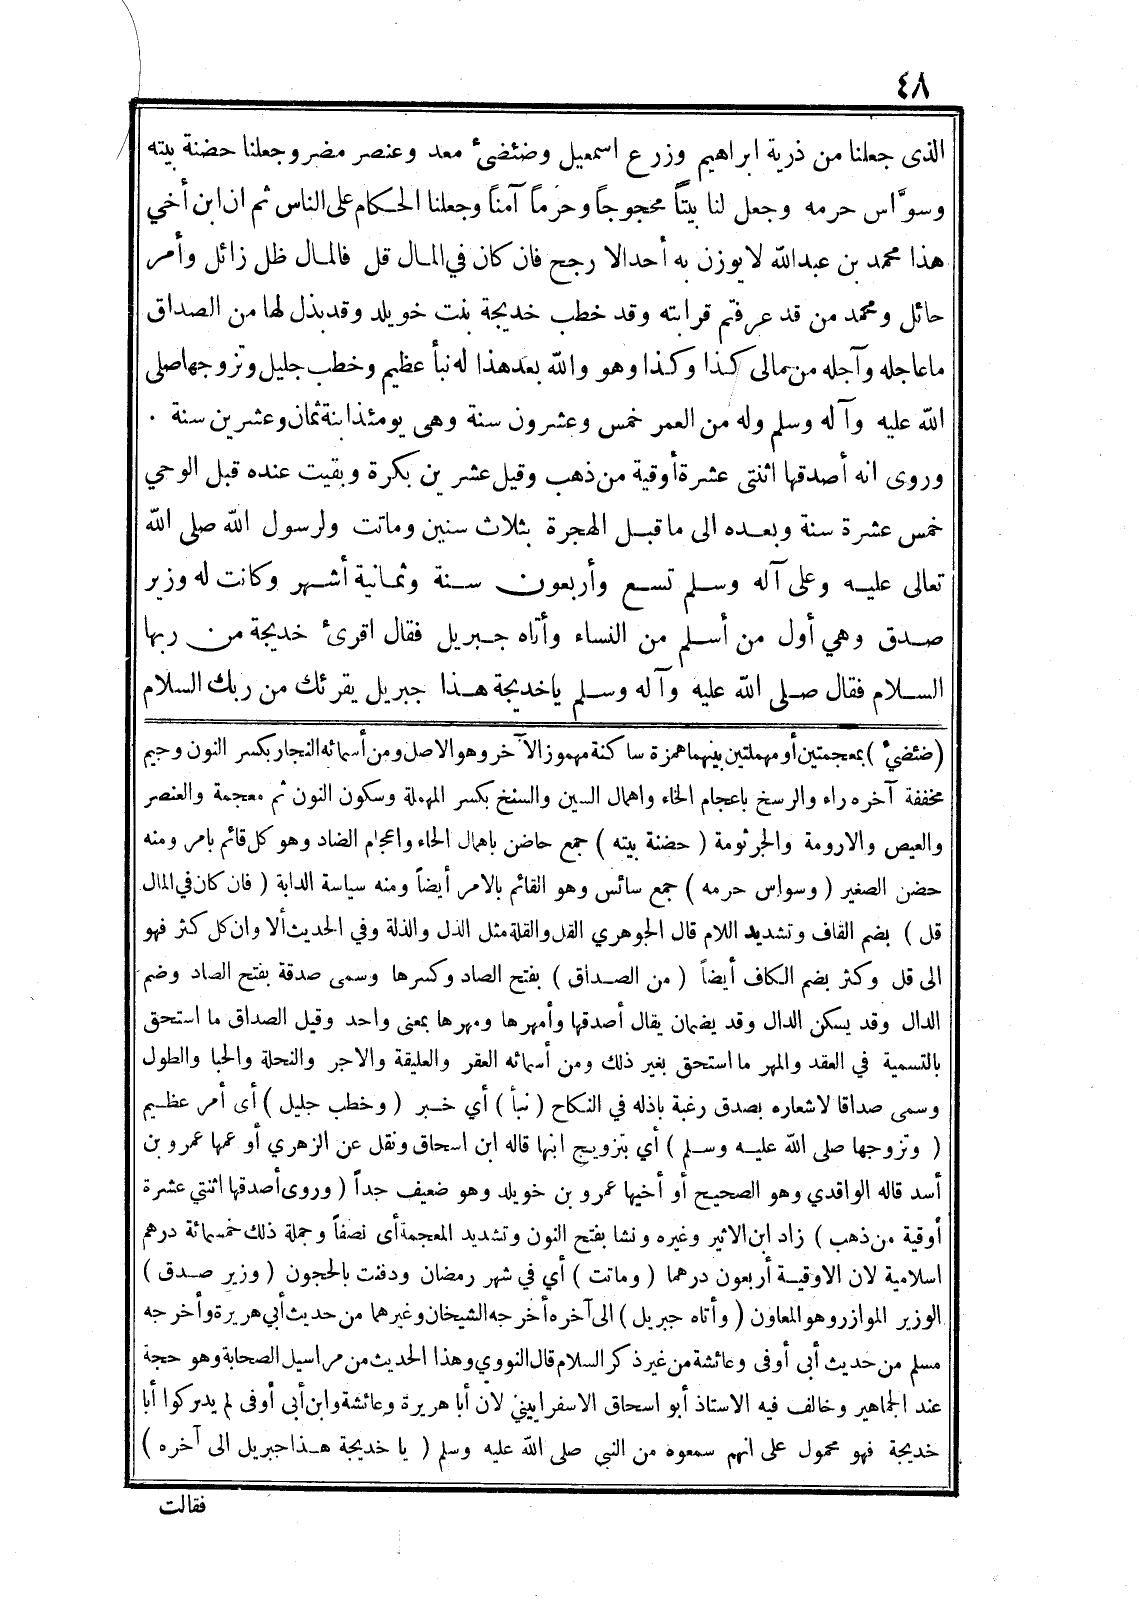 ٤٨
الذى جعلنا من ذرية ابراهيم وزرع اسمعيل وضئضئ معد وعنصر مضر وجعلنا حضنة بيته
وسوَّاس حرمه وجعل لنا بيتاً محجوجاً وحرَماً آمناً وجعلنا الحكام على الناس ثم ان ابن أخي
هذا محمد بن عبدالله لايوزن به أحد الا رجح فان كان في المال قل فالمال ظل زائل وأمر
حائل ومحمد من قد عرفتم قرابته وقد خطب خديجة بنت خويلد وقد بذل لها من الصداق
ماعاجله وآجله من مالى كذا وكذا وهو والله بعد هذا له نبأ عظيم وخطب جليل وتزوجها صلى
الله عليه وآله وسلم وله من العمر خمس وعشرون سنة وهى يومئذ ابنة ثمان وعشرين سنة .
وروى انه أصدقها اثنتى عشرة أوقية من ذهب وقيل عشرين بكرة وبقيت عنده قبل الوحي
خمس عشرة سنة وبعده الى ماقبل الهجرة بثلاث سنين وماتت ولرسول الله صلى الله
تعالى عليه وعلى آله وسلم تسع وأربعون سنة وثمانية أشهر وكانت له وزير
صدق وهي أول من أسلم من النساء وأتاه جبريل فقال اقرئ خديجة من ربها
السلام فقال صلى الله عليه وآله وسلم ياخديجة هذا جبريل يقرئك من ربك السلام
(ضئضئ) بمعجمتين أو مهملتين بينهما همزة ساكنة مهموز الآخر وهو الاصل ومن أسمائه النجار بكسر النون وجيم
مخففة آخره راء والرسخ باعجام الخاء واهمال السين والسنخ بكسر المهملة وسكون النون ثم معجمة والعنصر
والعيص والارومة والجرثومة (حضنة بيته) جمع حاضن باهمال الحاء واعجام الضاد وهو كل قائم بامر ومنه
حضن الصغير (وسواس حرمه) جمع سائس وهو القائم بالامر أيضاً ومنه سياسة الدابة (فان كان في المال
قل) بضم القاف وتشديد اللام قال الجوهري القل والقلة مثل الذل والذلة وفي الحديث ألا وان كل كثر فهو
الى قل وكثر بضم الكاف أيضاً (من الصداق) بفتح الصاد وكسرها وسمى صدقة بفتح الصاد وضم
الدال وقد يسكن الدال وقد يضمان يقال أصدقها وأمهرها ومهرها بمعنى واحد وقيل الصداق ما استحق
بالتسمية في العقد والمهر ما استحق بغير ذلك ومن أسمائه العقر والعليقة والاجر والنحلة والحبا والطول
وسمى صداقا لاشعاره بصدق رغبة باذله في النكاح (نبأ) أي خبر (وخطب جليل) أى أمر عظيم
(وتزوجها صلى الله عليه وسلم) أي بتزويج ابنها قاله ابن اسحاق ونقل عن الزهري أو عمها عمرو بن
أسد قاله الواقدي وهو الصحيح أو أخيها عمرو بن خويلد وهو ضعيف جداً (وروى أصدقها اثنتي عشرة
أوقية من ذهب) زاد ابن الاثير وغيره ونشا بفتح النون وتشديد المعجمة أى نصفاً وجملة ذلك خمسمائة درهم
اسلامية لان الاوقية أربعون درهما (وماتت) أي في شهر رمضان ودفنت بالحجون (وزير صدق)
الوزير الموازر وهو المعاون (وأتاه جبريل) الى آخره أخرجه الشيخان وغيرهما من حديث أبي هريرة وأخرجه
مسلم من حديث أبى أوفى وعائشة من غير ذكر السلام قال النووي وهذا الحديث من مراسيل الصحابة وهو حجة
عند الجماهير وخالف فيه الاستاذ أبو اسحاق الاسفراييني لان أبا هريرة وعائشة وابن أبى أوفى لم يدركوا أبا
خديجة فهو محمول على انهم سمعوه من النبي صلى الله عليه وسلم (يا خديجة هذا جبريل الى آخره)
فقالت